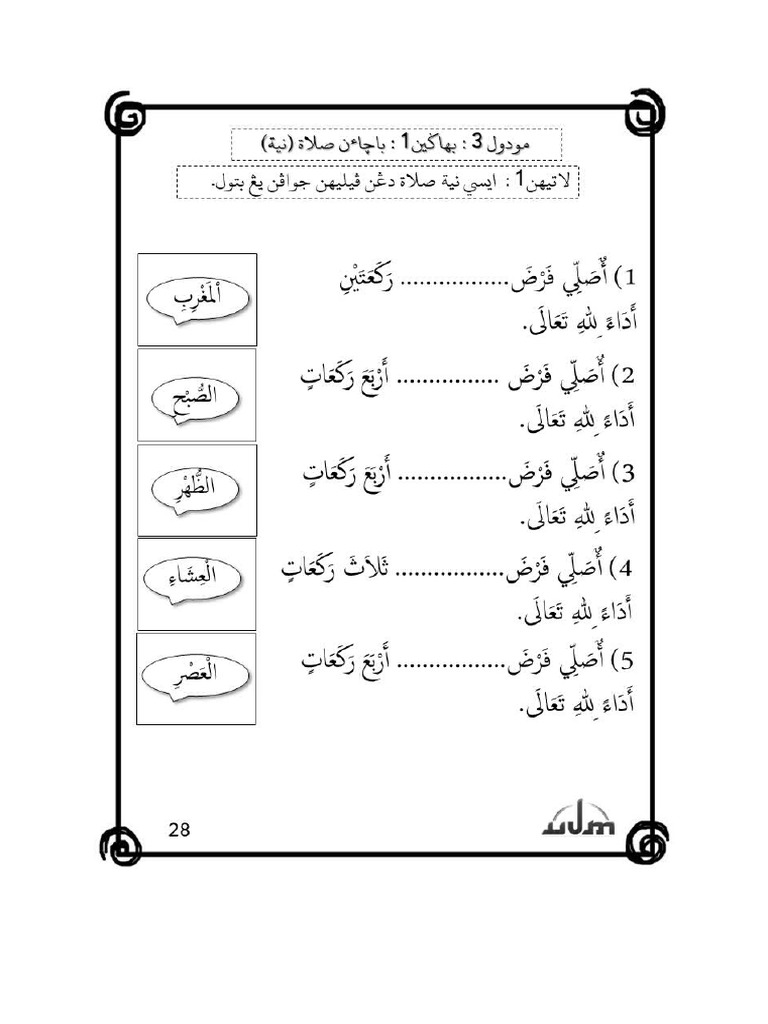 مودول 3 : بهاڬين 1 : باچاءن صلاة (نية)
لاتيهن 1 : ايسي نية صلاة دڠن ڤيليهن جواڤن يڠ بتول.
1) أُصَلِّي فَرْضَ................. رَكَعَتَيْنِ
أَدَاءً لِلهِ تَعَالَى.
2) أُصَلِّي فَرْضَ ................ أَرْبَعَ رَكَعَاتٍ
أَدَاءً لِلهِ تَعَالَى.
3) أُصَلِّي فَرْضَ................. أَرْبَعَ رَكَعَاتٍ
أَدَاءً لِلهِ تَعَالَى.
4) أُصَلِّي فَرْضَ................. ثَلاَثَ رَكَعَاتٍ
أَدَاءً لِلهِ تَعَالَى.
5) أُصَلِّي فَرْضَ................. أَرْبَعَ رَكَعَاتٍ
أَدَاءً لِلهِ تَعَالَى.
الْمَغْرِبِ
الصُّبْحِ
الظُّهْرِ
الْعِشَاءِ
الْعَصْرِ
28